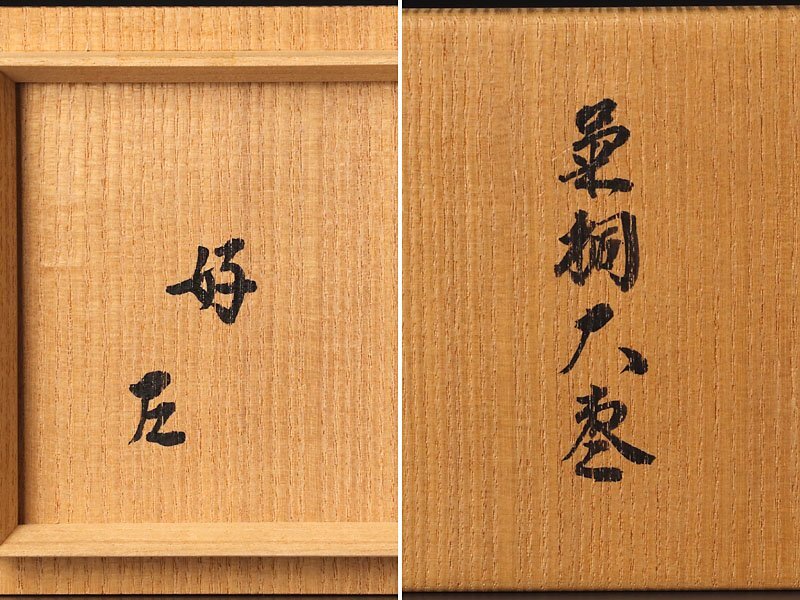 菊桐大棗
好
左